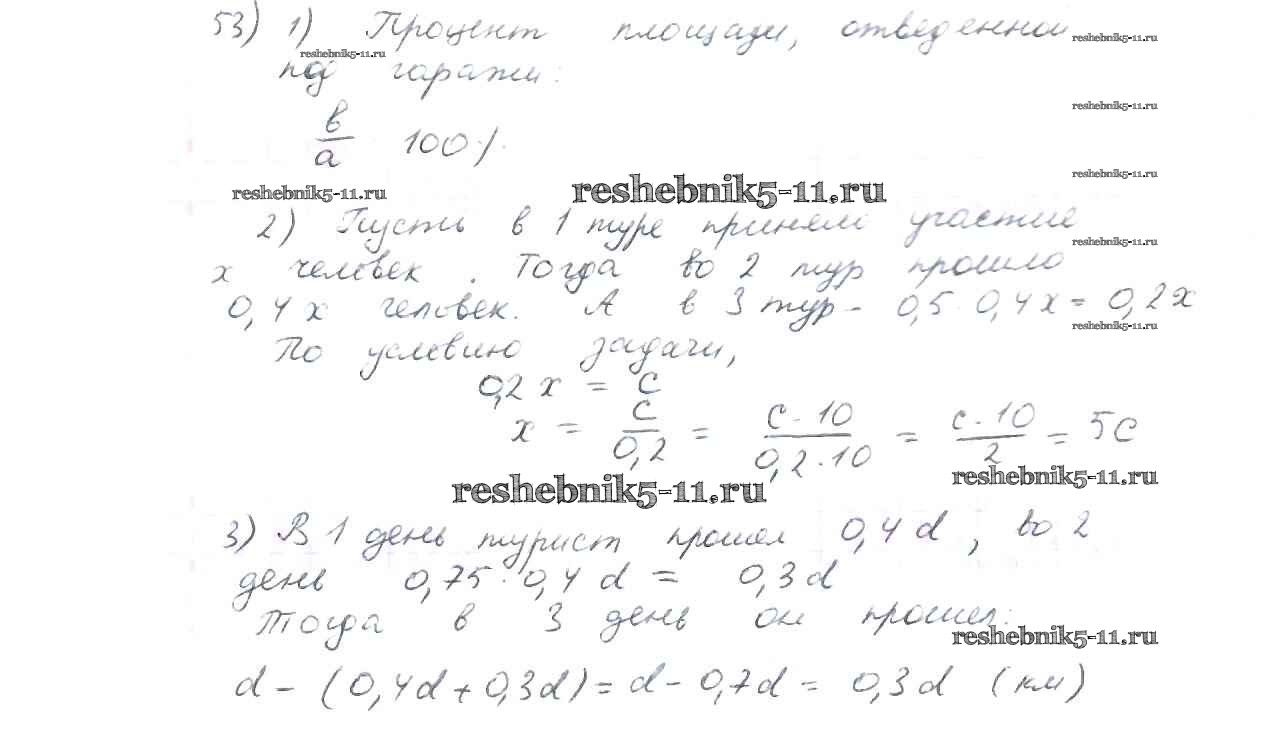 53) 1) Процент площади, отведенной
reshebnik5-11.ru
reshebnik5-11.ru
под гаражи:
reshebnik5-11.ru
в/а 100%
reshebnik5-11.ru
reshebnik5-11.ru
reshebnik5-11.ru
2) Пусть в 1 туре приняло участие
reshebnik5-11.ru
x человек. Тогда во 2 тур прошло
0,4x человек. А в 3 тур - 0,5·0,4x = 0,2x
reshebnik5-11.ru
По условию задачи,
0,2x = c
x = c/0,2 = c·10/0,2·10 = c·10/2 = 5c
reshebnik5-11.ru
reshebnik5-11.ru
3) В 1 день турист прошел 0,4d, во 2
день 0,75·0,4d = 0,3d
Тогда в 3 день он прошел:
reshebnik5-11.ru
d - (0,4d + 0,3d) = d - 0,7d = 0,3d (км)